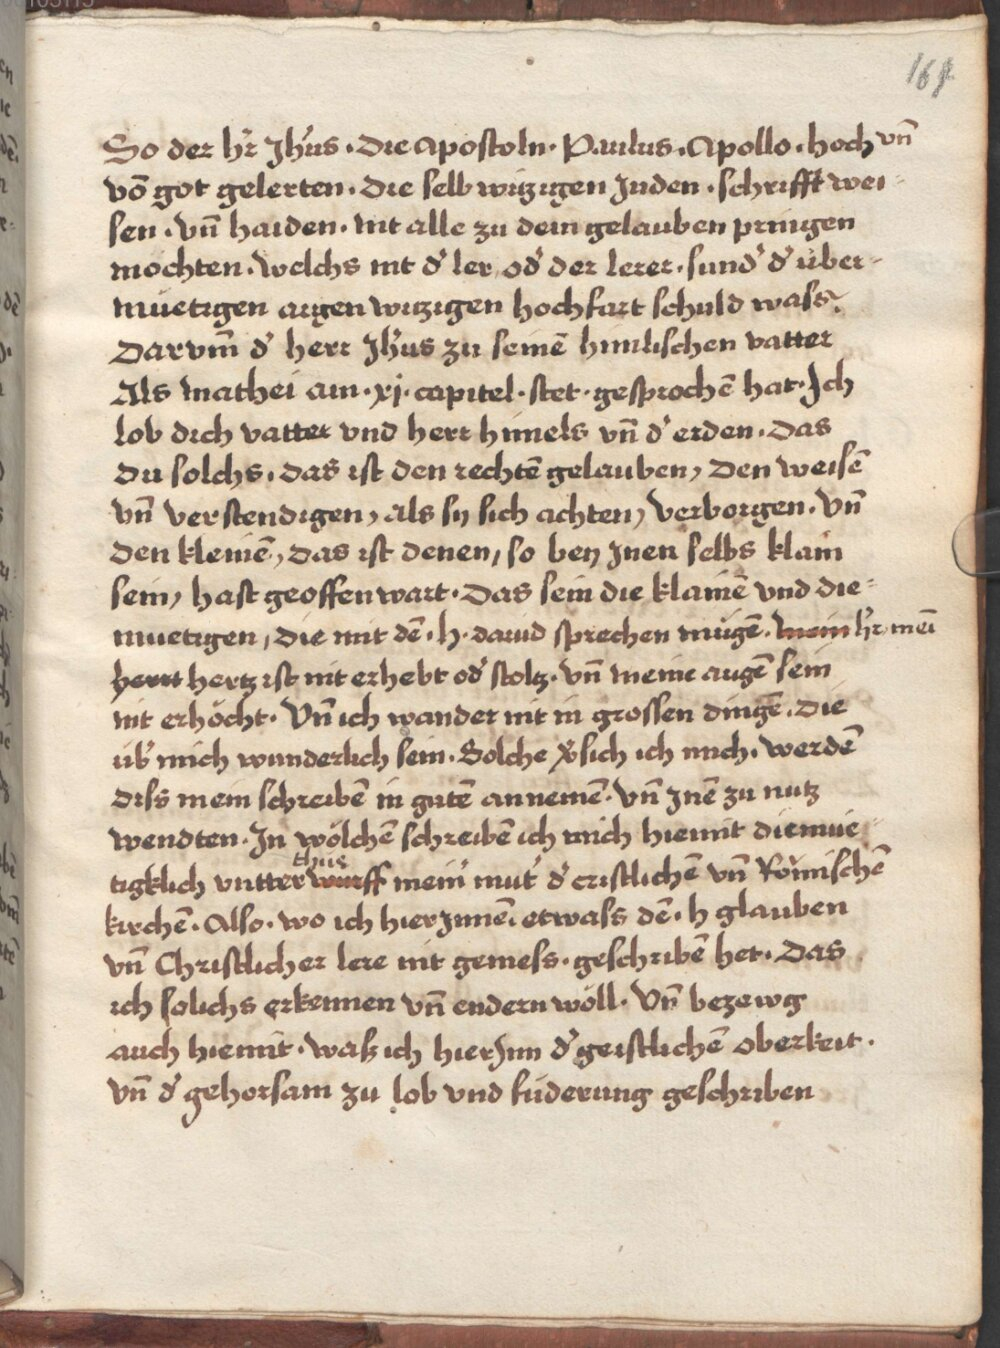 169
So der hr̄ Jhūs · Die Apostoln · Paulus · Apollo · hoch vn̄
vō got gelerten · Die selb witzigen Juden · schrifft wei-
sen · vn̄ haiden · nit alle zu dem gelauben pringen
mochten · welchs nit d' ler, od' der lerer · sund' d' über-
müetigen aigen witzigen hochfart schuld wass.
Darvm̄ d' herr Jhūs zu seinē himlischen vatter
Als mathei am · xj · capitel · stet · gesprochē hat · Ich
lob dich vatter vnd herr himels vn̄ d' erden · Das
du solchs · das ist den rechtē gelauben, Den weisē
vn̄ verstendigen, als sy sich achten, verborgen · Vn̄
den kleinē, Das ist denen, so bey Jnen selbs klain
sein, hast geoffenwart · Das sein die klainē vnd die-
muetigen, Die mit dē · h · dauid sprechen mügē · mein hr̄ mei
herrt hertz ist nit erhebt od' stoltz · vn̄ meine augē sein
nit erhöcht · Vn̄ ich wander nit in grossen dingē · Die
üb' mich wunderlich sein · Solche v'sich ich mich · werdē
diss mein schreibē in gutē annemē · vn̄ Jnē zu nutz
wendten · Jn wölchē schreibē ich mich hiemit diemüe-
thue
tigklich vntter wurff mein' mut' d' cristlichē vn̄ Römischē
kirchē · Also · wo ich hierJnnē etwass dē · h glauben
vn̄ Christlicher lere nit gemess · geschribē het · Das
ich solichs erkennen vn̄ endern wöll · Vn̄ bezewg
auch hiemit · waß ich hierJnn d' geistlichē oberkeit ·
vn̄ d' gehorsam zu lob vnd füderung geschriben